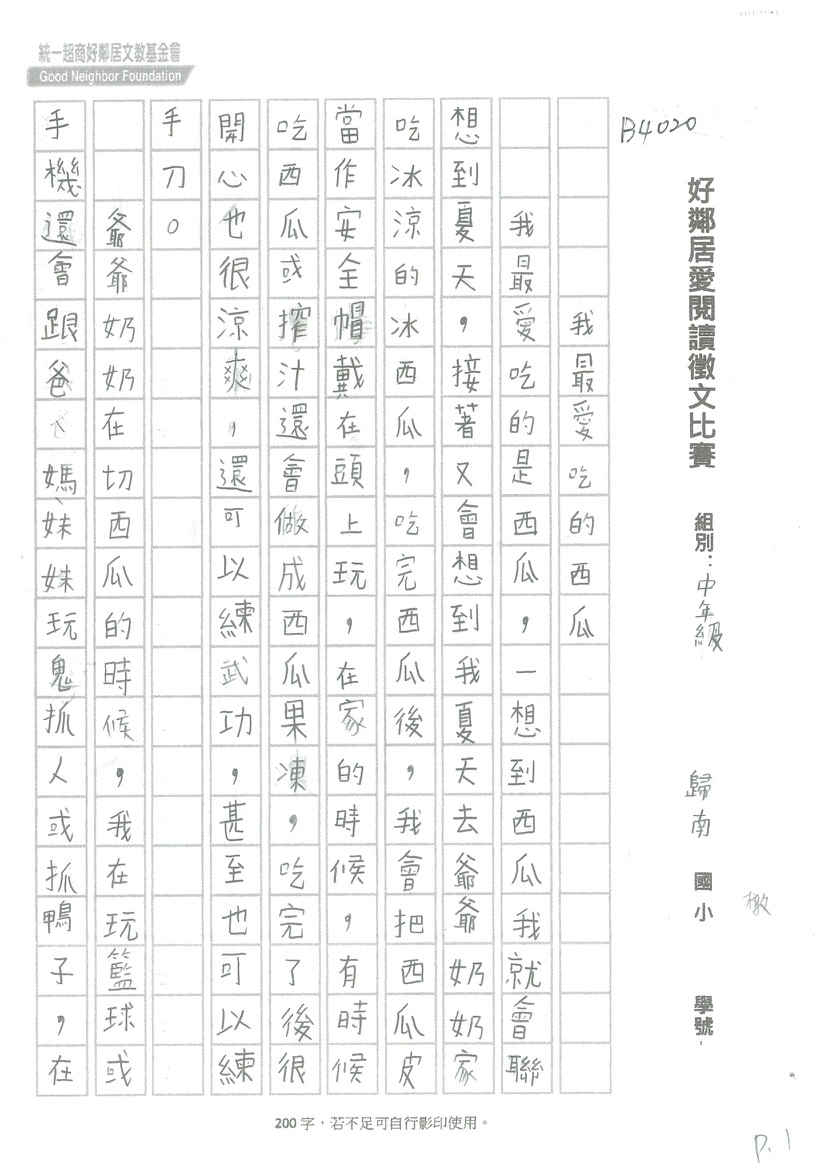 統一超商好鄰居文教基金會
Good Neighbor Foundation
B4020
好鄰居愛閱讀徵文比賽 組別：中年級 歸南國小 學號
我最愛吃的西瓜
我最愛吃的是西瓜，一想到西瓜我就會聯
想到夏天，接著又會想到我夏天去爺爺奶奶家
吃冰涼的冰西瓜，吃完西瓜後，我會把西瓜皮
當作安全帽戴在頭上玩，在家的時候，有時候
吃西瓜或搾汁還會做成西瓜果凍，吃完了後很
開心也很涼爽，還可以練武功，甚至也可以練
手刀。
爺爺奶奶在切西瓜的時候，我在玩籃球或
手機還會跟爸爸媽、妹妹玩鬼抓人或抓鴨子，在
200字，若不足可自行影印使用。
P.1